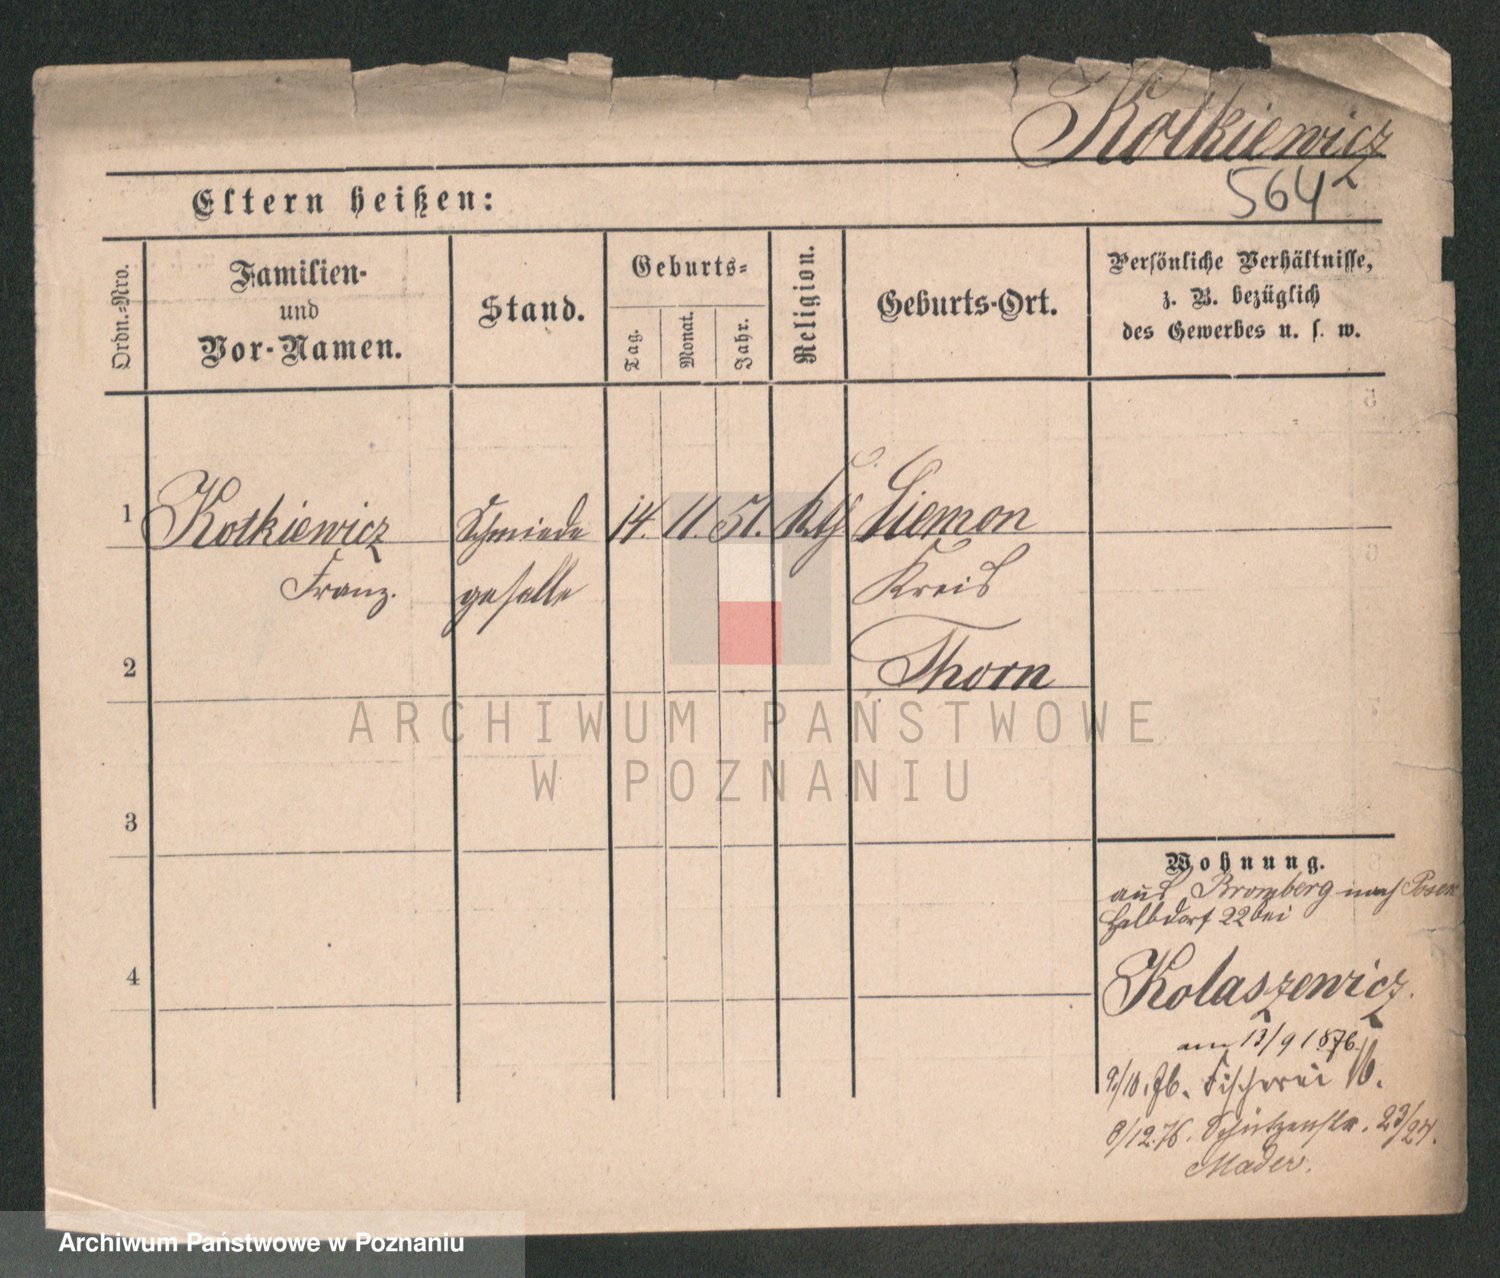 Kotkiewicz
564
Eltern heißen:
Ordn.-Nro.
Familien-
und
Vor-Namen.
Stand.
Geburts-
Tag.
Monat.
Jahr.
Religion.
Geburts-Ort.
Persönliche Verhältnisse,
z. B. bezüglich
des Gewerbes u. s. w.
1
Kotkiewicz
Franz.
Schmiede
geselle
14. 11. 51.
Siemon
Kreis
Thorn
2
3
4
Wohnung.
aus Bromberg nach Posen
Halbdorf 22 bei
Kolaszewicz.
am 13/9 1876.
9/10. 76. Fischerei 16.
8/12.76. Schützenstr. 23/24.
Mader.
ARCHIWUM PAŃSTWOWE
W POZNANIU
Archiwum Państwowe w Poznaniu